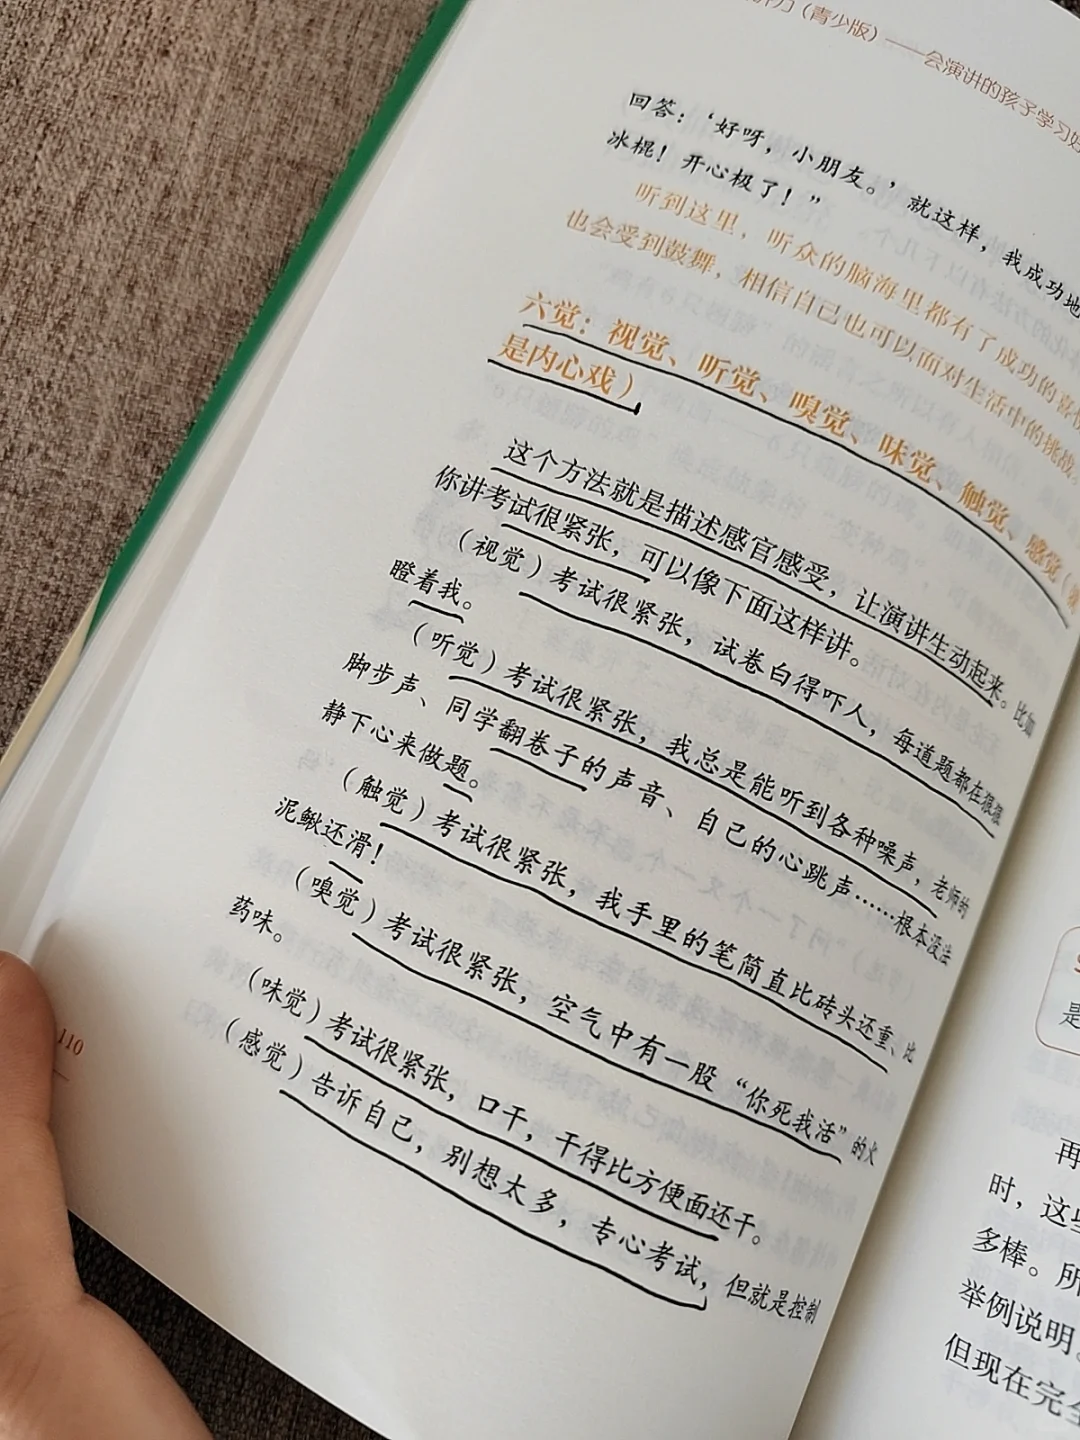 （青少版）——会演讲的孩子学习好
回答：‘好呀，小朋友。’就这样，我成功地
冰棍！开心极了！”
听到这里，听众的脑海里都有了成功的喜悦
也会受到鼓舞，相信自己也可以面对生活中的挑战。
六觉：视觉、听觉、嗅觉、味觉、触觉、感觉（
是内心戏）
这个方法就是描述感官感受，让演讲生动起来。比如
你讲考试很紧张，可以像下面这样讲。
（视觉）考试很紧张，试卷白得吓人，每道题都在狠狠
瞪着我。
（听觉）考试很紧张，我总是能听到各种噪声，老师的
脚步声、同学翻卷子的声音、自己的心跳声……根本没法
静下心来做题。
（触觉）考试很紧张，我手里的笔简直比砖头还重、比
泥鳅还滑！
（嗅觉）考试很紧张，空气中有一股“你死我活”的火
药味。
（味觉）考试很紧张，口干，干得比方便面还干。
（感觉）告诉自己，别想太多，专心考试，但就是控制
110
是
再
时，这些
多棒。所
举例说明。
但现在完全